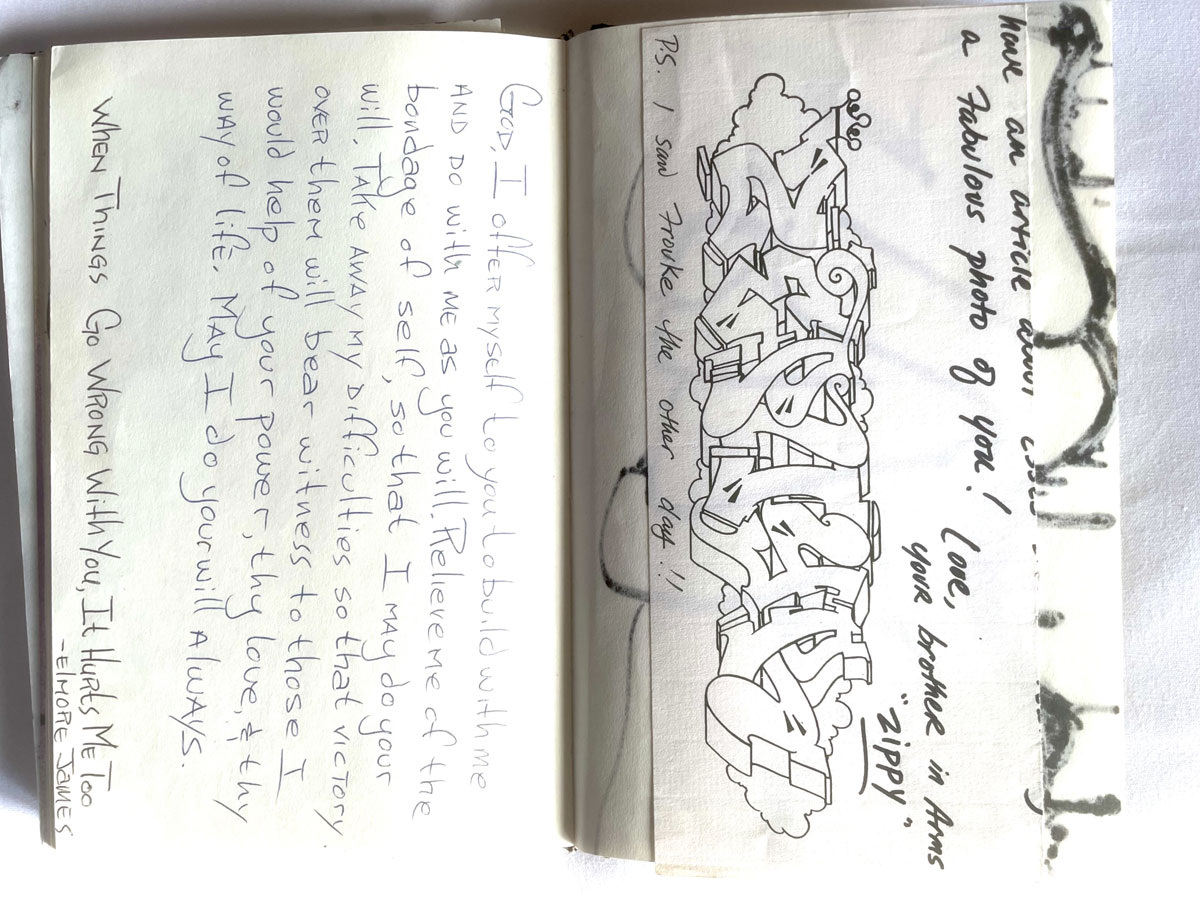 have an article about
a Fabulous photo of you!
Love,
your brother in Arms
"Zippy".
P.S. I saw Frouke the other day!!
GOD, I offer Myself to you to build with me
AND DO with ME AS you will. Relieve me of the
bondage of self, so that I MAY do your
will. TAKE AWAY MY Difficulties so that victory
OVER them will bear witness to those I
would help of your power, thy love, & thy
WAY of life. MAY I do your will ALWAYS.
WHEN THINGS GO WRONG WITH YOU, IT HURTS ME TOO
-ELMORE JAMES